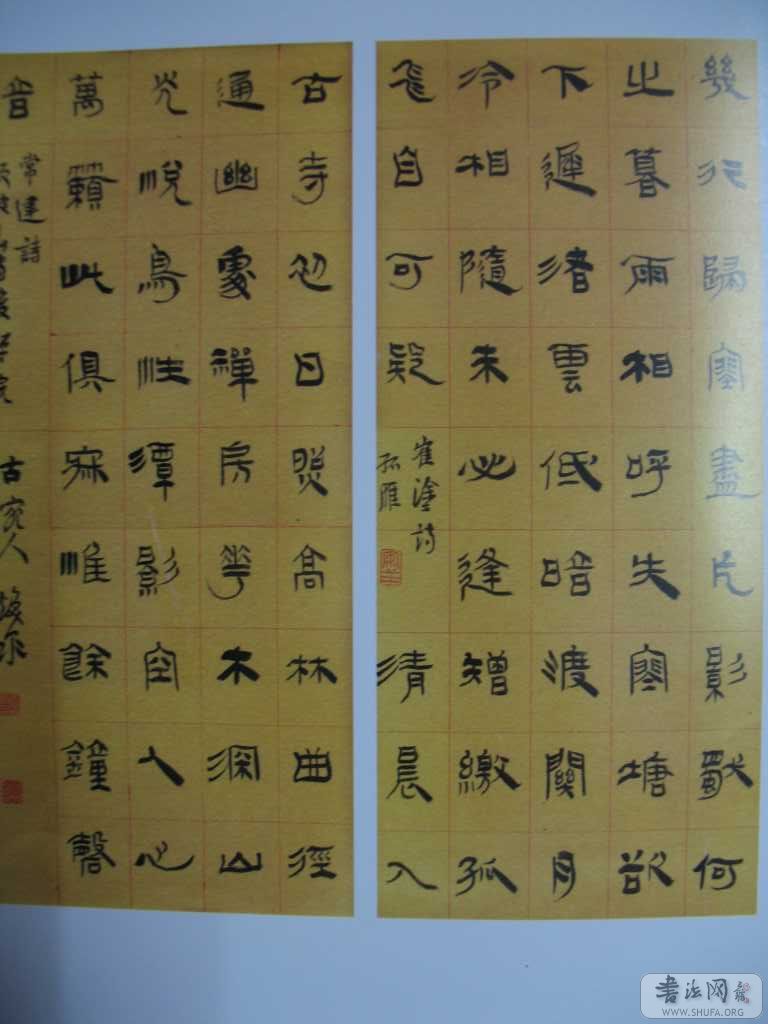 幾行歸塞盡片影獨何
之暮雨相呼失寒塘欲
下遲渚雲低暗渡關月
冷相隨未必逢矰繳孤
飛自可疑
崔塗詩
孤雁
清晨入
古寺初日照高林曲徑
通幽處禪房花木深山
光悅鳥性潭影空人心
萬籟此俱寂惟餘鐘磬
音
常建詩
古宛人
书法网
WWW.SHUFA.ORG